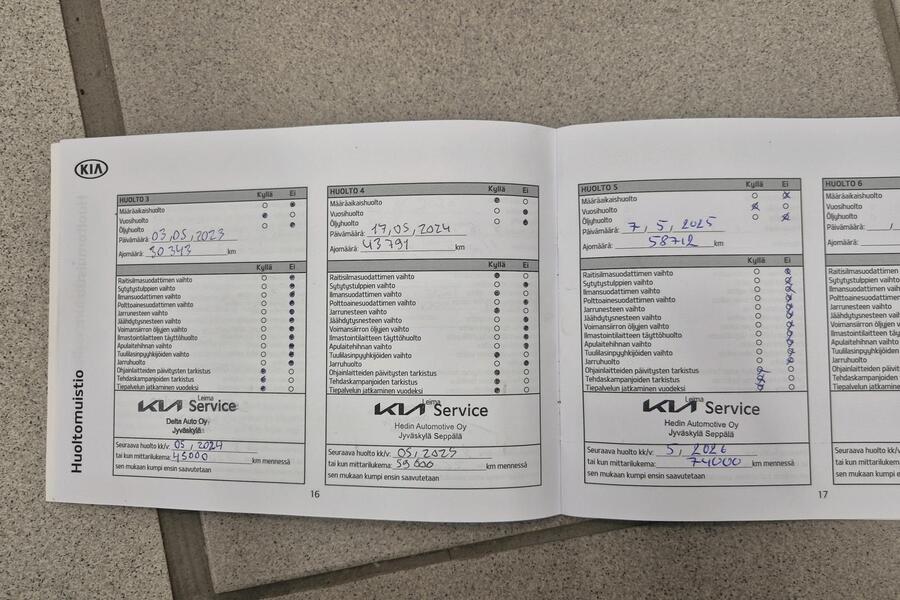 KIA
Huoltomuistio
HUOLTO 3 Kyllä Ei
Määräaikaishuolto
Vuosihuolto
Öljyhuolto
Päivämäärä: 03,05,2023
Ajomäärä: 30 343 km
Kyllä Ei
Raitisilmasuodattimen vaihto
Sytytystulppien vaihto
Ilmansuodattimen vaihto
Polttoainesuodattimen vaihto
Jarrunesteen vaihto
Jäähdytysnesteen vaihto
Voimansiirron öljyjen vaihto
Ilmastointilaitteen täyttöhuolto
Apulaitehihnan vaihto
Tuulilasinpyyhkijöiden vaihto
Jarruhuolto
Ohjainlaitteiden päivitysten tarkistus
Tehdaskampanjoiden tarkistus
Tiepalvelun jatkaminen vuodeksi
Leima
KIA Service
Delta Auto Oy
Jyväskylä
Seuraava huolto kk/v: 05, 2024
tai kun mittarilukema: 45000 km mennessä
sen mukaan kumpi ensin saavutetaan
HUOLTO 4 Kyllä Ei
Määräaikaishuolto
Vuosihuolto
Öljyhuolto
Päivämäärä: 17,05,2024
Ajomäärä: 43791 km
Kyllä Ei
Raitisilmasuodattimen vaihto
Sytytystulppien vaihto
Ilmansuodattimen vaihto
Polttoainesuodattimen vaihto
Jarrunesteen vaihto
Jäähdytysnesteen vaihto
Voimansiirron öljyjen vaihto
Ilmastointilaitteen täyttöhuolto
Apulaitehihnan vaihto
Tuulilasinpyyhkijöiden vaihto
Jarruhuolto
Ohjainlaitteiden päivitysten tarkistus
Tehdaskampanjoiden tarkistus
Tiepalvelun jatkaminen vuodeksi
Leima
KIA Service
Hedin Automotive Oy
Jyväskylä Seppälä
Seuraava huolto kk/v: 05, 2025
tai kun mittarilukema: 59 000 km mennessä
sen mukaan kumpi ensin saavutetaan
16
HUOLTO 5 Kyllä Ei
Määräaikaishuolto
Vuosihuolto
Öljyhuolto
Päivämäärä: 7, 5, 2025
Ajomäärä: 58712 km
Kyllä Ei
Raitisilmasuodattimen vaihto
Sytytystulppien vaihto
Ilmansuodattimen vaihto
Polttoainesuodattimen vaihto
Jarrunesteen vaihto
Jäähdytysnesteen vaihto
Voimansiirron öljyjen vaihto
Ilmastointilaitteen täyttöhuolto
Apulaitehihnan vaihto
Tuulilasinpyyhkijöiden vaihto
Jarruhuolto
Ohjainlaitteiden päivitysten tarkistus
Tehdaskampanjoiden tarkistus
Tiepalvelun jatkaminen vuodeksi
Leima
KIA Service
Hedin Automotive Oy
Jyväskylä Seppälä
Seuraava huolto kk/v: 5, 2026
tai kun mittarilukema: 74000 km mennessä
sen mukaan kumpi ensin saavutetaan
17
HUOLTO 6
Määräaikaishuolto
Vuosihuolto
Öljyhuolto
Päivämäärä: /
Ajomäärä:
Raitisilmasuodattimen
Sytytystulppien vaihto
Ilmansuodattimen
Polttoainesuodattimen
Jarrunesteen vaihto
Jäähdytysnesteen
Voimansiirron öljyjen
Ilmastointilaitteen
Apulaitehihnan vaihto
Tuulilasinpyyhkijöiden
Jarruhuolto
Ohjainlaitteiden
Tehdaskampanjoiden
Tiepalvelun jatkaminen
Seuraava huolto kk/v:
tai kun mittarilukema:
sen mukaan kumpi